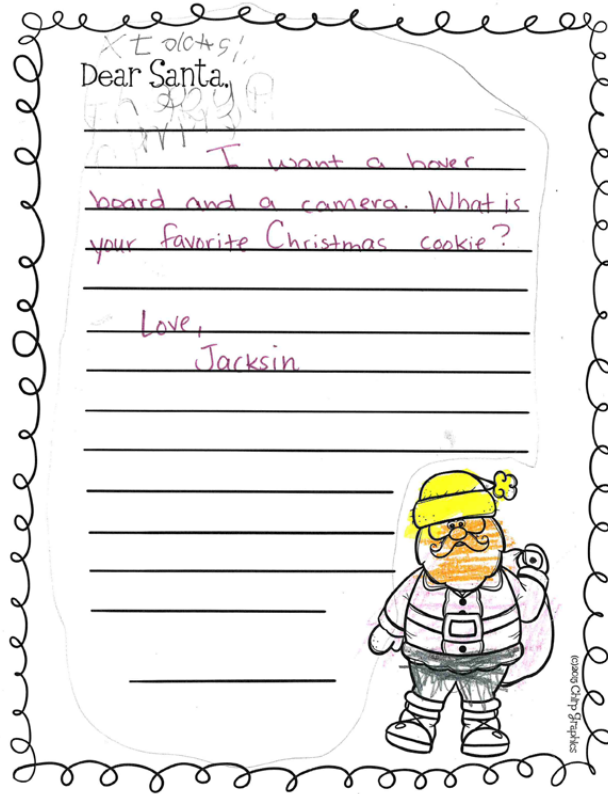 Dear Santa,
I want a hover
board and a camera. What is
your favorite Christmas cookie?
Love,
Jacksin
(c)2015 Chirp Graphics